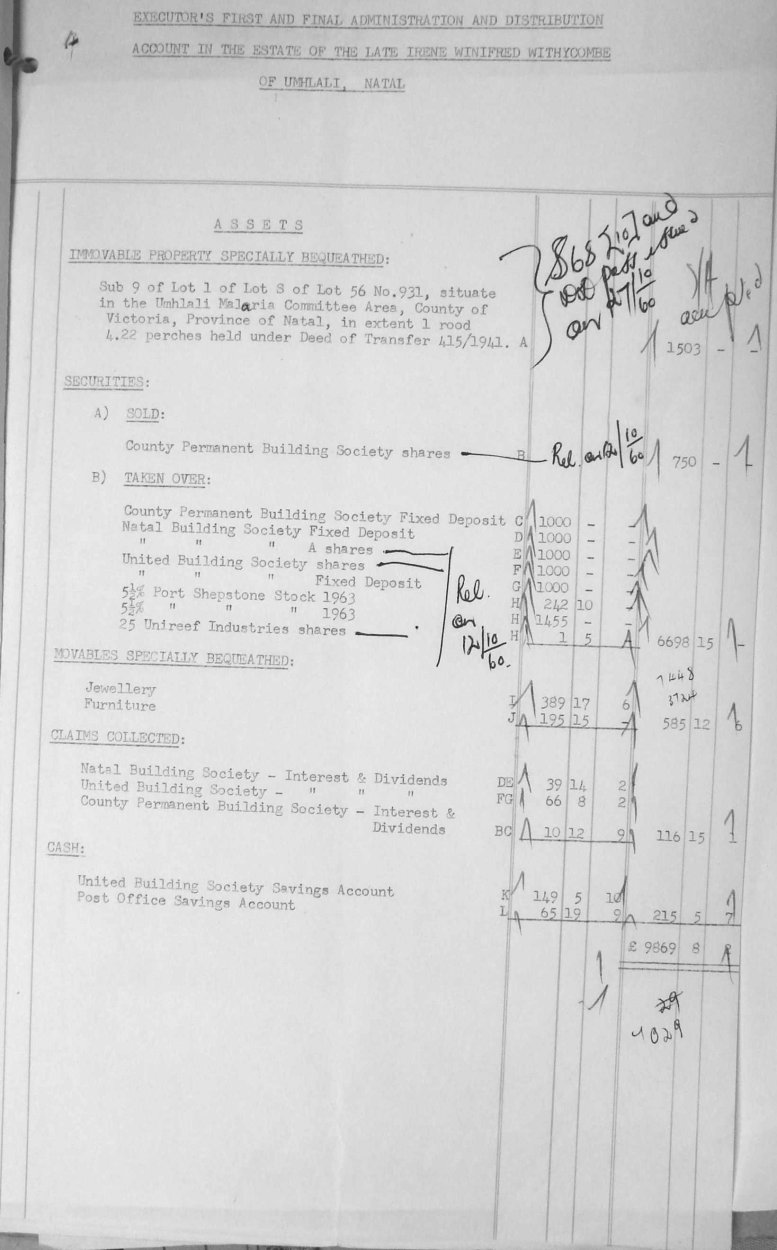 EXECUTOR'S FIRST AND FINAL ADMINISTRATION AND DISTRIBUTION
ACCOUNT IN THE ESTATE OF THE LATE IRENE WINIFRED WITHYCOMBE
OF UMHLALI, NATAL
A S S E T S
IMMOVABLE PROPERTY SPECIALLY BEQUEATHED:
Sub 9 of Lot 1 of Lot S of Lot 56 No.931, situate
in the Umhlali Malaria Committee Area, County of
Victoria, Province of Natal, in extent 1 rood
4.22 perches held under Deed of Transfer 415/1941. A 1503 - -
on 27/10/60
SECURITIES:
A) SOLD:
County Permanent Building Society shares B Rel. on 12/10/60 750 -
B) TAKEN OVER:
County Permanent Building Society Fixed Deposit C 1000 - -
Natal Building Society Fixed Deposit D 1000 - -
" " " A shares E 1000 - -
United Building Society shares F 1000 - -
" " " Fixed Deposit G 1000 - -
5½% Port Shepstone Stock 1963 H 242 10 -
5½% " " " 1963 H 1455 - -
25 Unireef Industries shares H 1 5 6698 15 -
Rel. on 12/10/60.
MOVABLES SPECIALLY BEQUEATHED:
Jewellery I 389 17 6
Furniture J 195 15 - 585 12 6
CLAIMS COLLECTED:
Natal Building Society - Interest & Dividends DE 39 14 2
United Building Society - " " " FG 66 8 2
County Permanent Building Society - Interest &
Dividends BC 10 12 9 116 15 1
CASH:
United Building Society Savings Account K 149 5 10
Post Office Savings Account L 65 19 9 215 5 7
£ 9869 8
29
1029